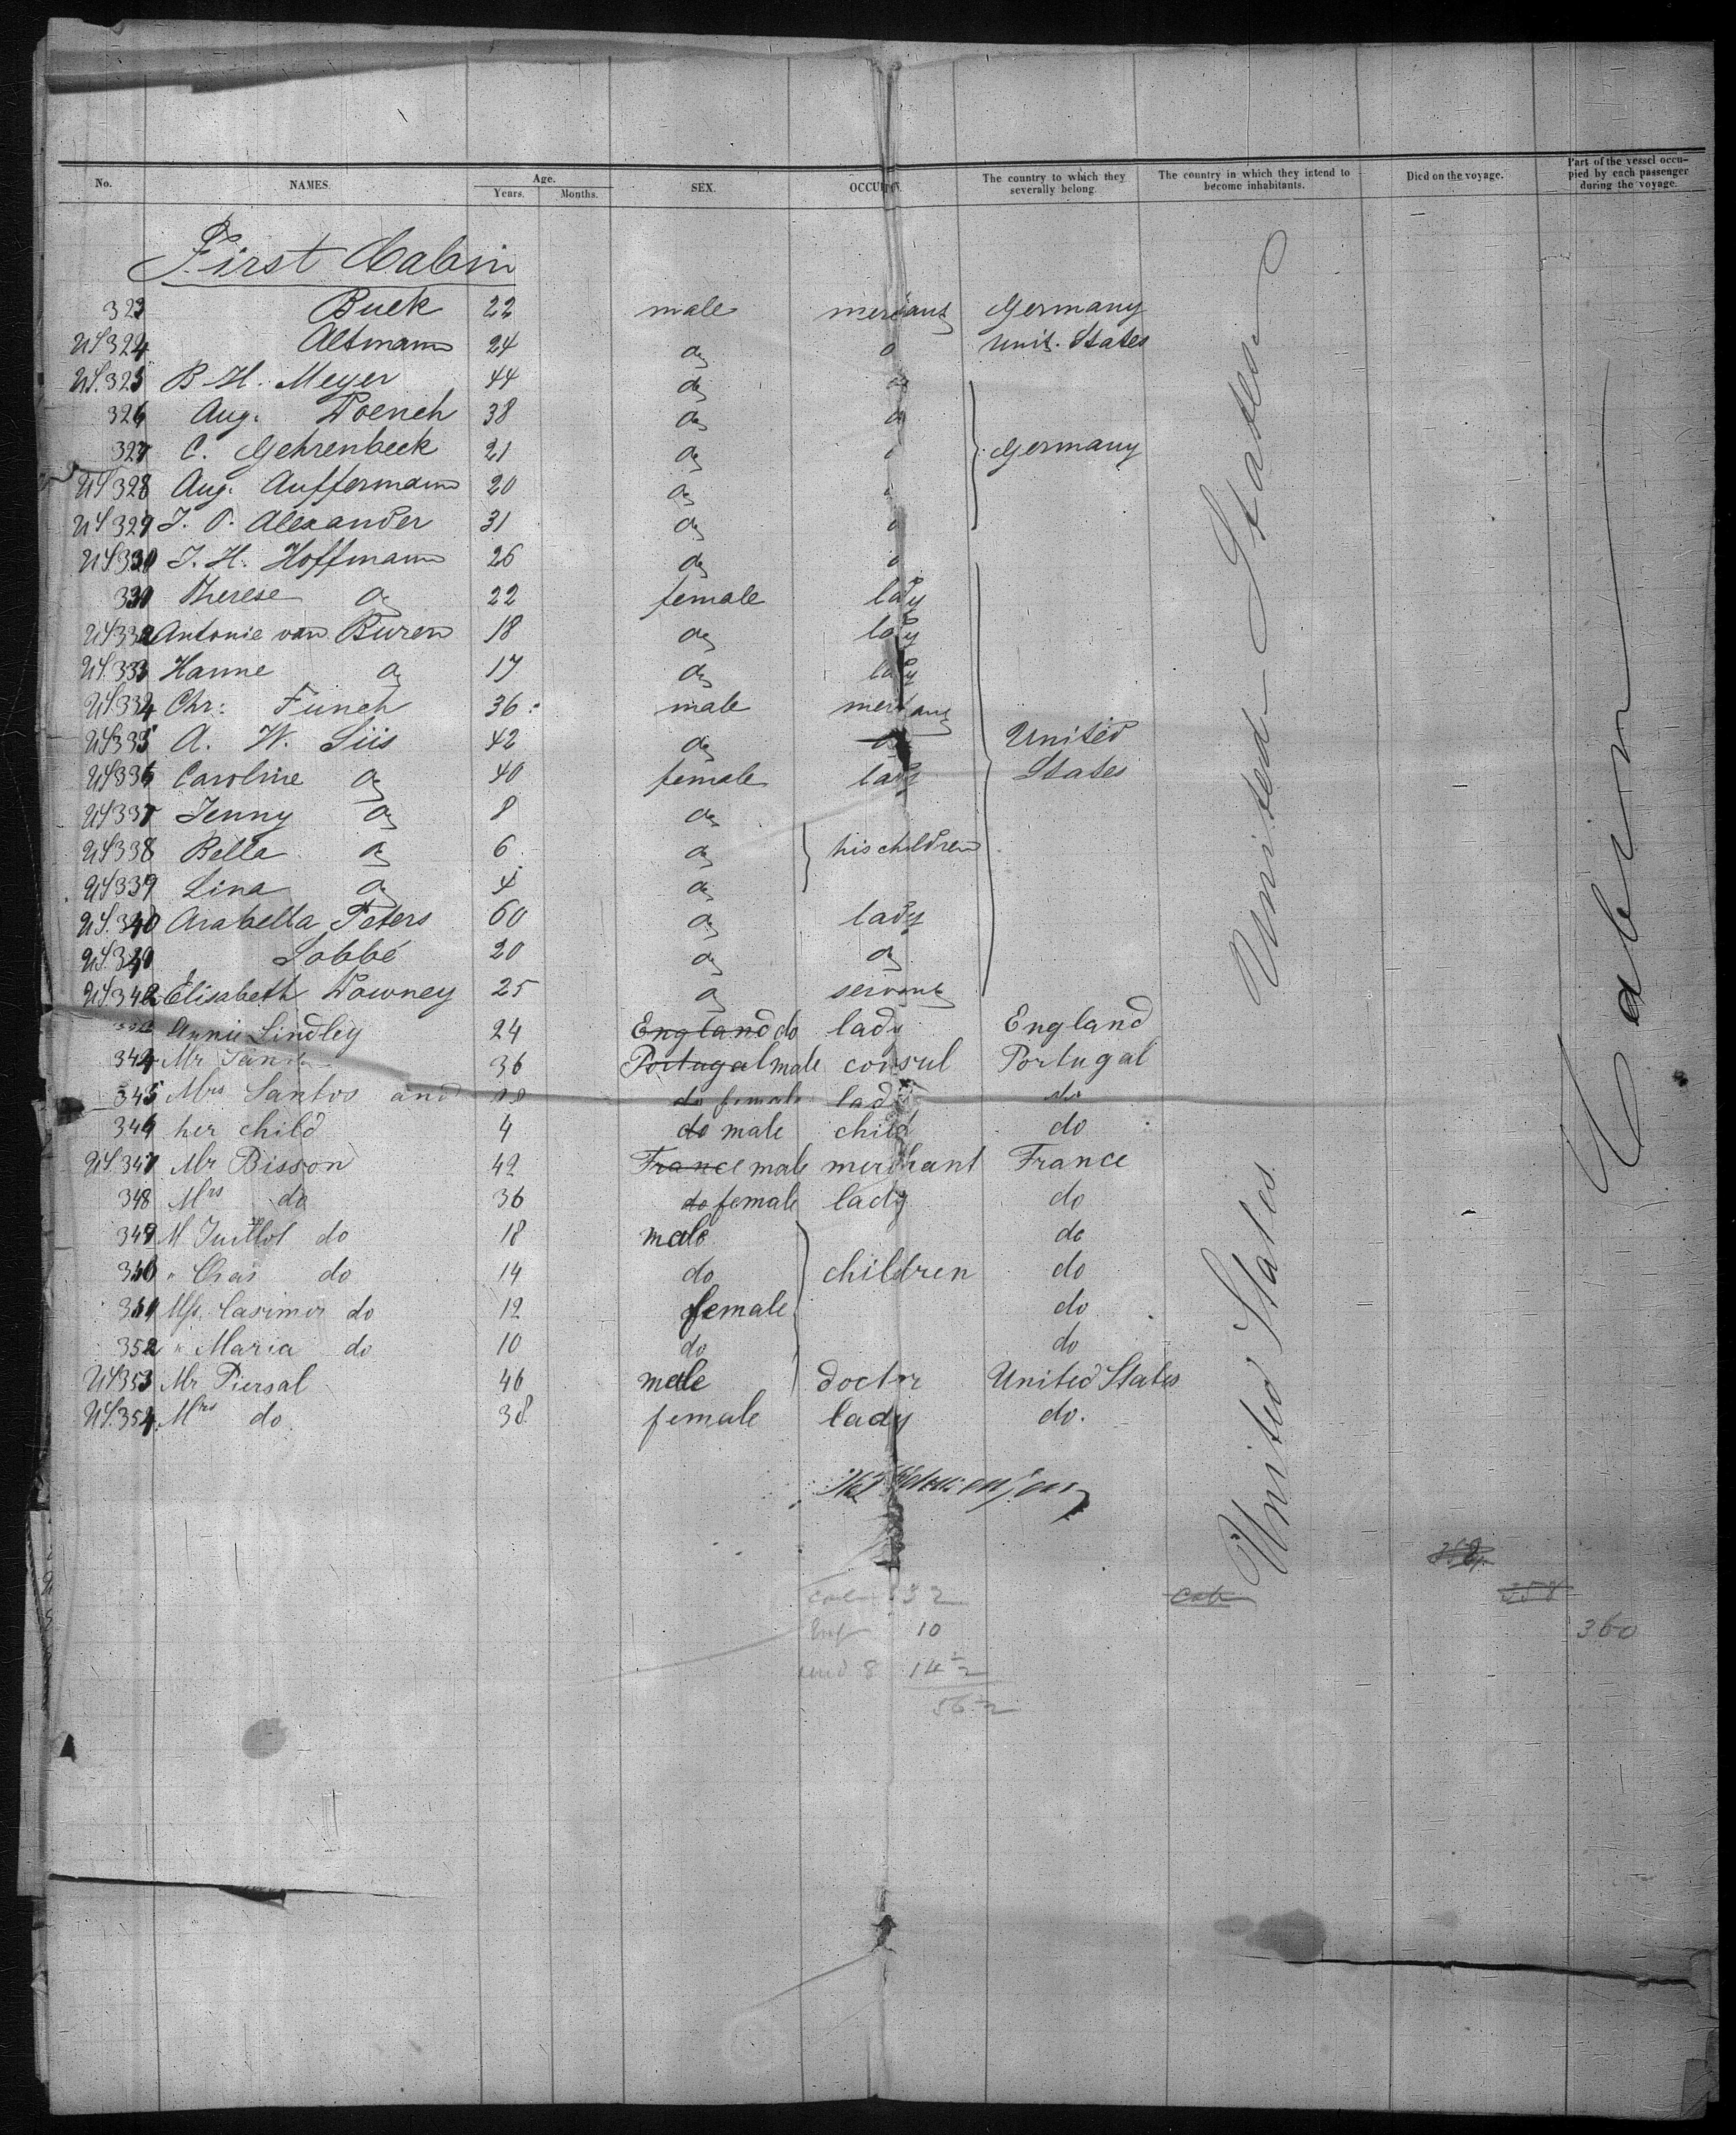 No. NAMES. Age. Years. Months. SEX. The country to which they severally belong. The country in which they intend to become inhabitants. Died on the voyage. Part of the vessel occupied by each passenger during the voyage.
First Cabin
323 Buek 22 male Germany
US 324 Altmann 24 do Unit. States
US. 325 B. H. Meyer 44 do
326 Aug. 38 do
327 C. Gehrenbeck 21 do Germany
US 328 Aug. Auffermann 20 do
US 329 Alexander 31 do
US 330 J. H. Hoffmann 26 do
331 Therese do 22 female lady
US 332 Antonie van Buren 18 do lady
US. 333 Hanne do 17 do lady
US. 334 Chr: Funch 36 male
US 335 A. W. Süs 42 do United
US 336 Caroline do 40 female lady States
US 337 Jenny do 8 do
US 338 Bella do 6 do his children
US 339 Lina do 4 do
US. 340 Arabella Peters 60 do lady
US. Labbé 20 do do
US 342 Elisabeth Downey 25 do servant
Annie Lindley 24 England do lady England
344 Mr 36 Portugal male consul Portugal
345 Mrs Santos and do female lady do
346 her child 4 do male child do
US. 347 Mr Bisson 42 France male merchant France
348 Mrs do 36 do female lady do
349 M do 18 male do
350 " Chas do 14 do children do
351 Casimir do 12 female do
352 " Maria do 10 do do
US 353 Mr Piersal 46 male doctor United States
US. 354 Mrs do. 38 female lady do.
United States
United States
Cabin
32
10
14
56
358
360